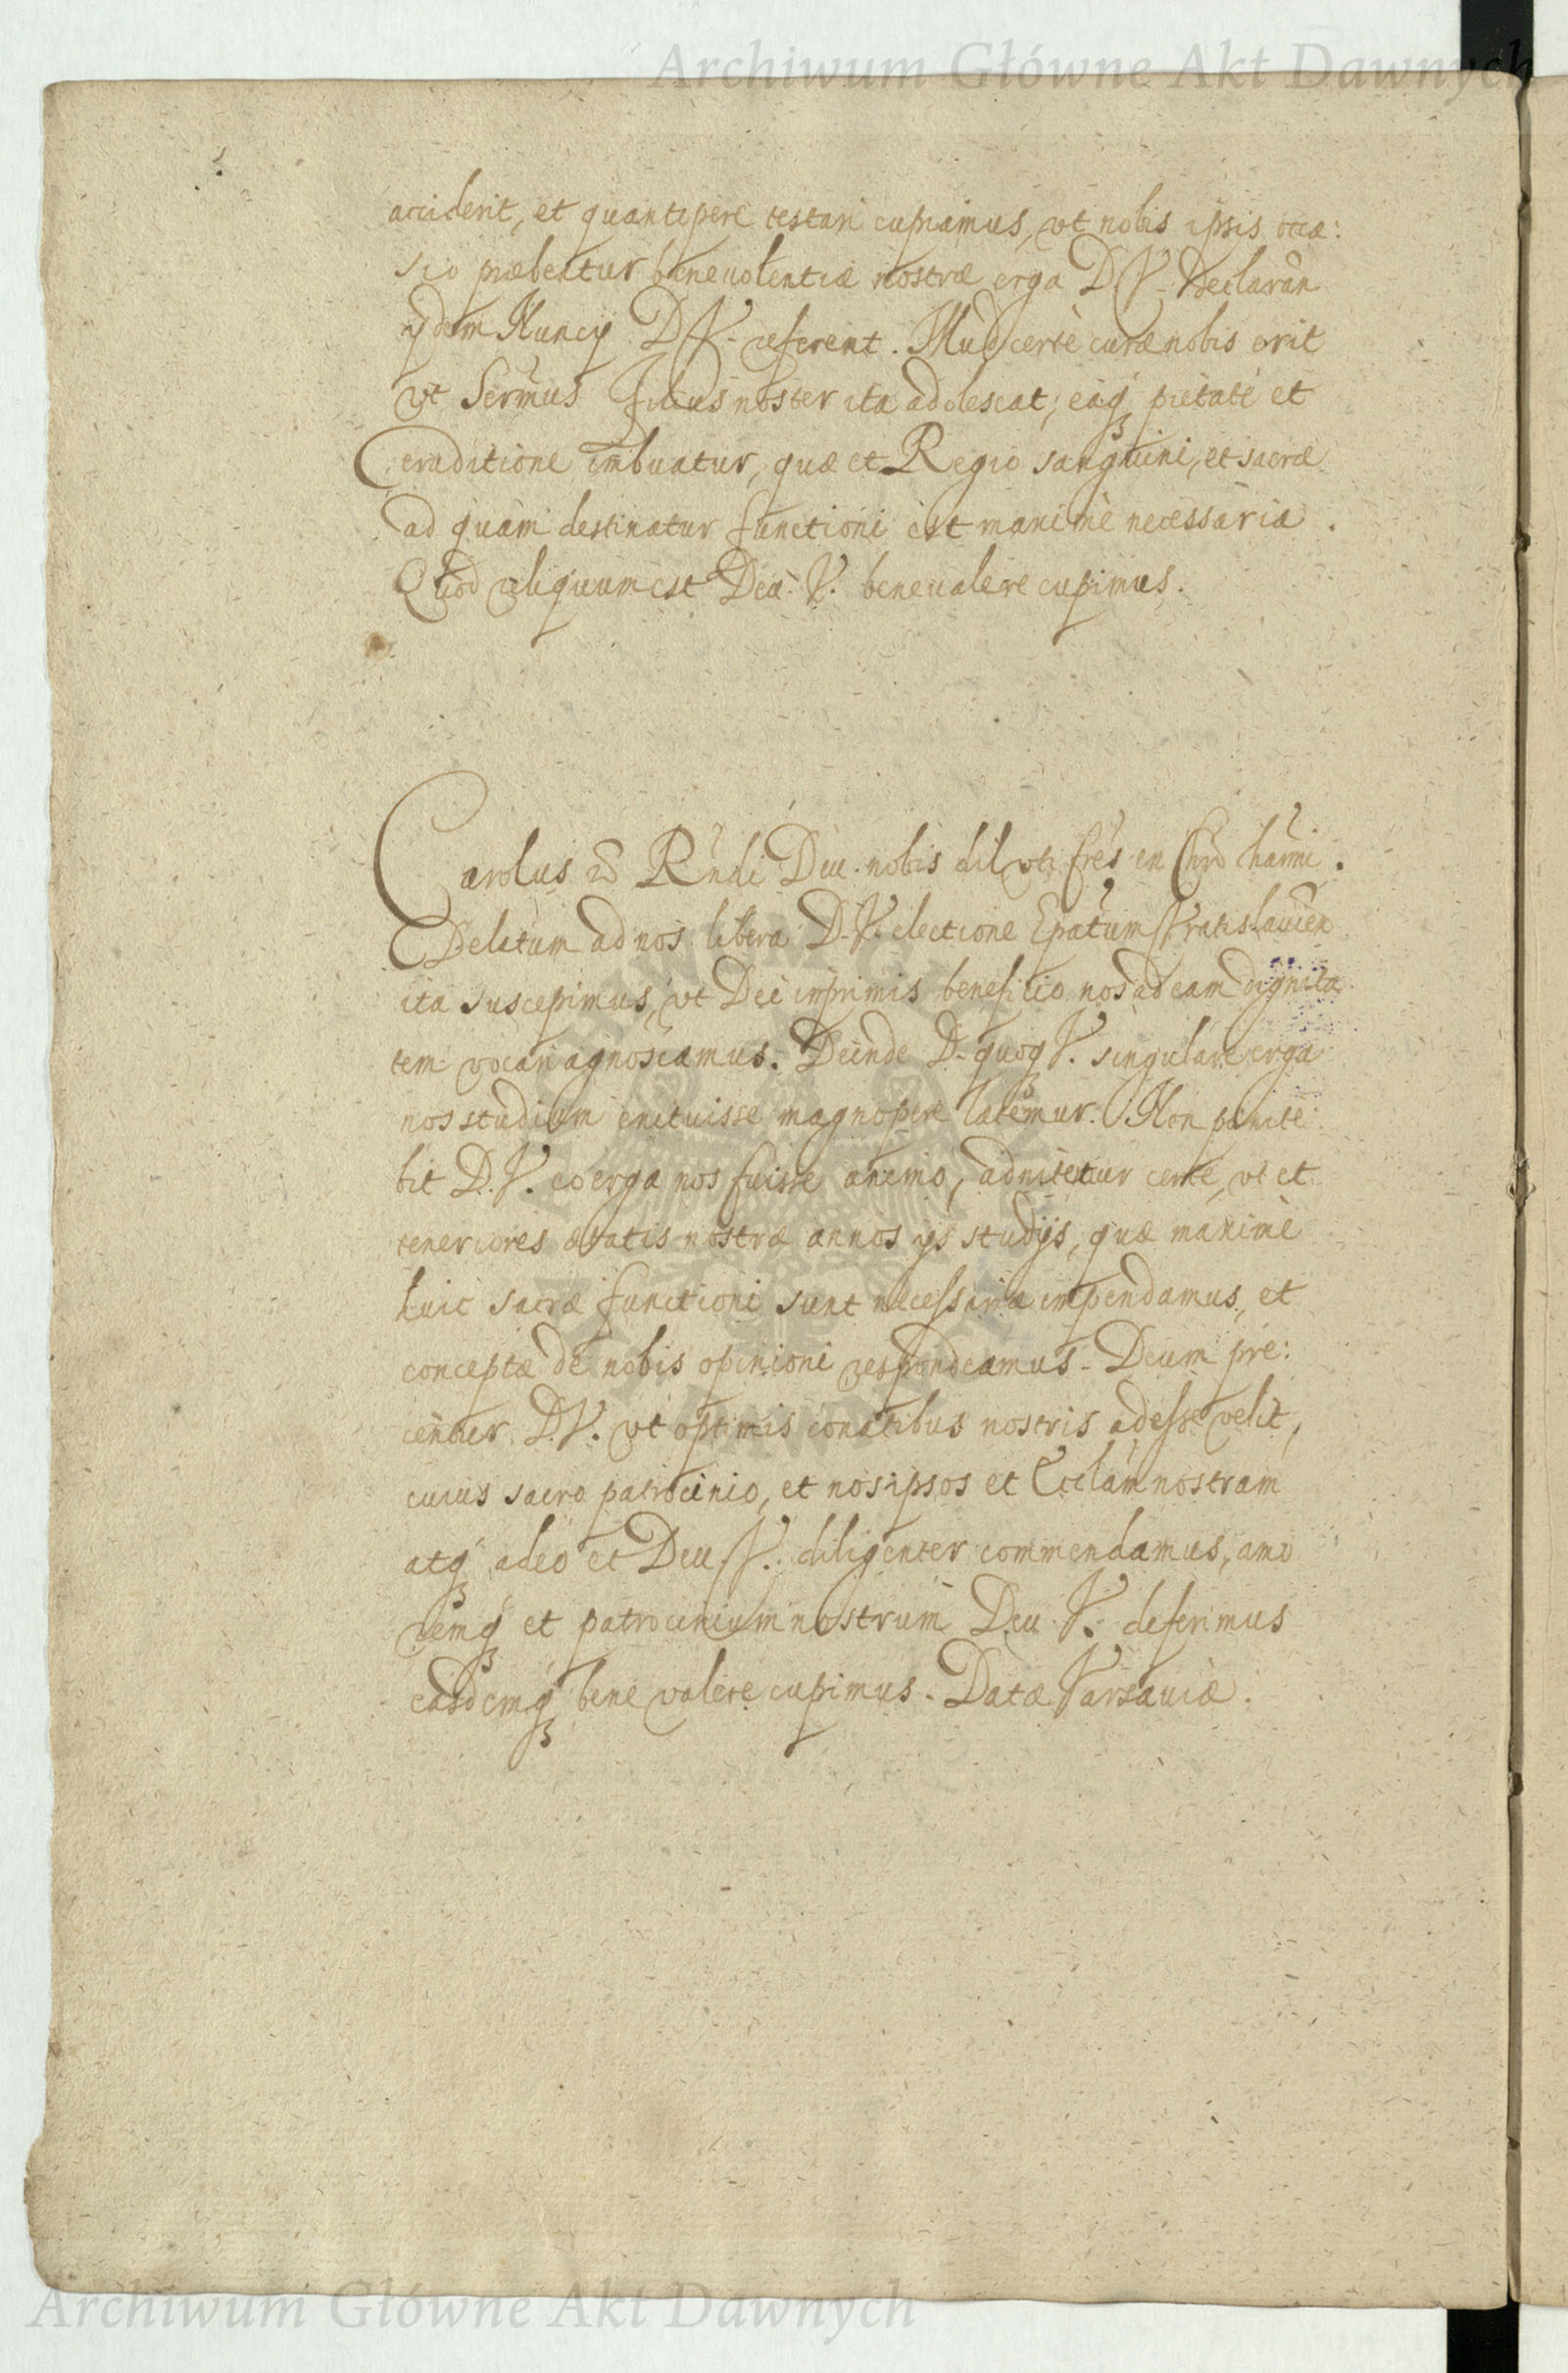 Archiwum Główne Akt Dawnych
acciderit, et quantopere testari cupiamus, vt nobis ipsis occa:
sio præbeatur beneuolentiæ nostræ erga D. V. declaran
ijdem Nuncij D V. referent. Illud certè curæ nobis erit
vt Sermus Filius noster ita adolescat; eaq₃ pietate et
eruditione imbuatur, quæ et Regio sanguini, et sacræ
ad quam destinatur functioni est maximè necessaria.
Quod reliquum est Dea. V. bene ualere cupimus.
Carolus Rndi Deu. nobis dil. vti fres in Chro charmi.
Delatum ad nos libera D. V. electione Epatum Vratislauien
ita suscepimus, vt Dei inprimis beneficio nos ad eam dignita
tem vocari agnoscamus. Deinde D. quoq₃ V. singulare erga
nos studium enituisse magnopere lætemur. Non pœnite:
bit D. V. eo erga nos fuisse animo, adnitemur certe, vt et
teneriores ætatis nostræ annos ijs studijs, quæ maximè
huic sacræ functioni sunt necessaria impendamus, et
conceptæ de nobis opinioni respondeamus. Deum pre:
centur D. V. vt optimis conatibus nostris adesse velit,
cuius sacro patrocinio, et nos ipsos et Ecclam nostram
atq₃ adeo et Deu. V. diligenter commendamus, amo
remq₃ et patrocinium nostrum Deu V. deferimus
easdemq₃ bene valere cupimus. Datæ Varsauiæ.
Archiwum Główne Akt Dawnych